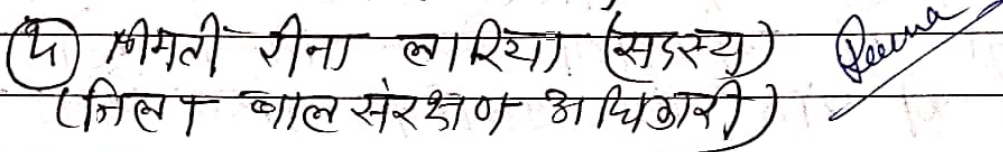 (4) श्रीमती रीना लारिया (सदस्य) Reena
(जिला बाल संरक्षण अधिकारी)